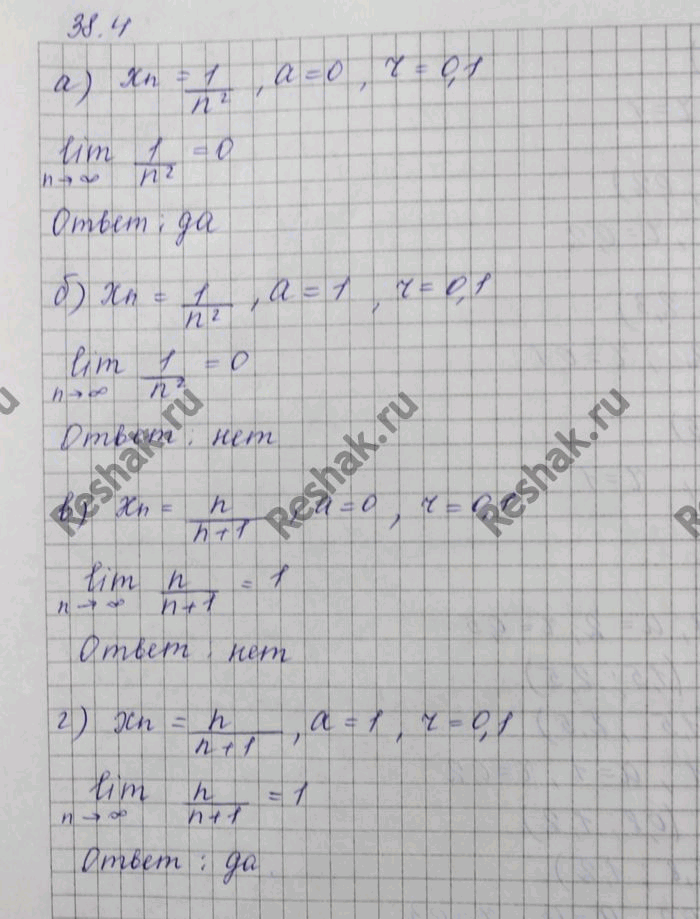 38.4
а) xn = 1/n² , a = 0 , r = 0,1
lim n→∞ 1/n² = 0
Ответ : да
б) xn = 1/n² , a = 1 , r = 0,1
lim n→∞ 1/n² = 0
Ответ : нет
в) xn = n/n+1 , a = 0 , r = 0,1
lim n→∞ n/n+1 = 1
Ответ : нет
г) xn = n/n+1 , a = 1 , r = 0,1
lim n→∞ n/n+1 = 1
Ответ : да
Reshak.ru
Reshak.ru